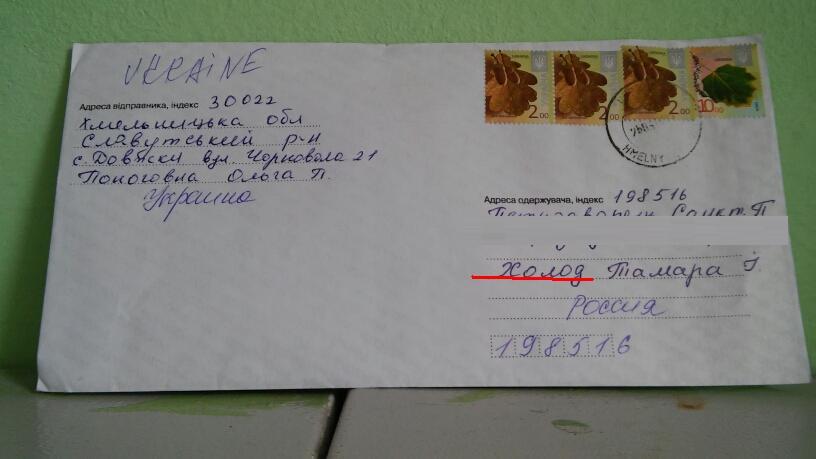 UKRAINE
Адреса відправника, індекс 30022
Хмельницька обл
Славутський р-н
вул. Чорновола 21
Ольга П.
Украина
2.00
2.00
2.00
10.00
HMELNY
Адреса одержувача, індекс 198516
Санкт-П
Холод Тамара
Россия
198516